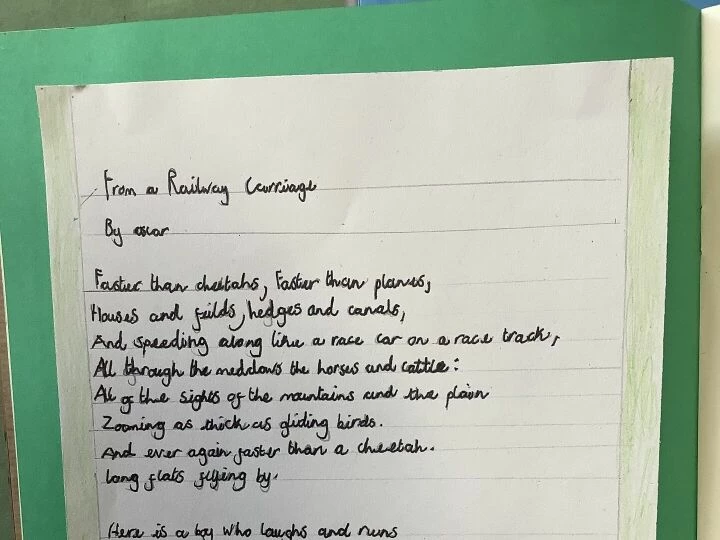 From a Railway Carriage
By oscar
Faster than cheetahs, Faster than planes,
Houses and feilds, hedges and canals,
And speeding along like a race car on a race track,
All through the meddows the horses and cattle:
All of the sights of the mountains and the plain
Zooming as thick as gliding birds.
And ever again faster than a cheetah.
long flats flying by.
Here is a boy who laughs and runs